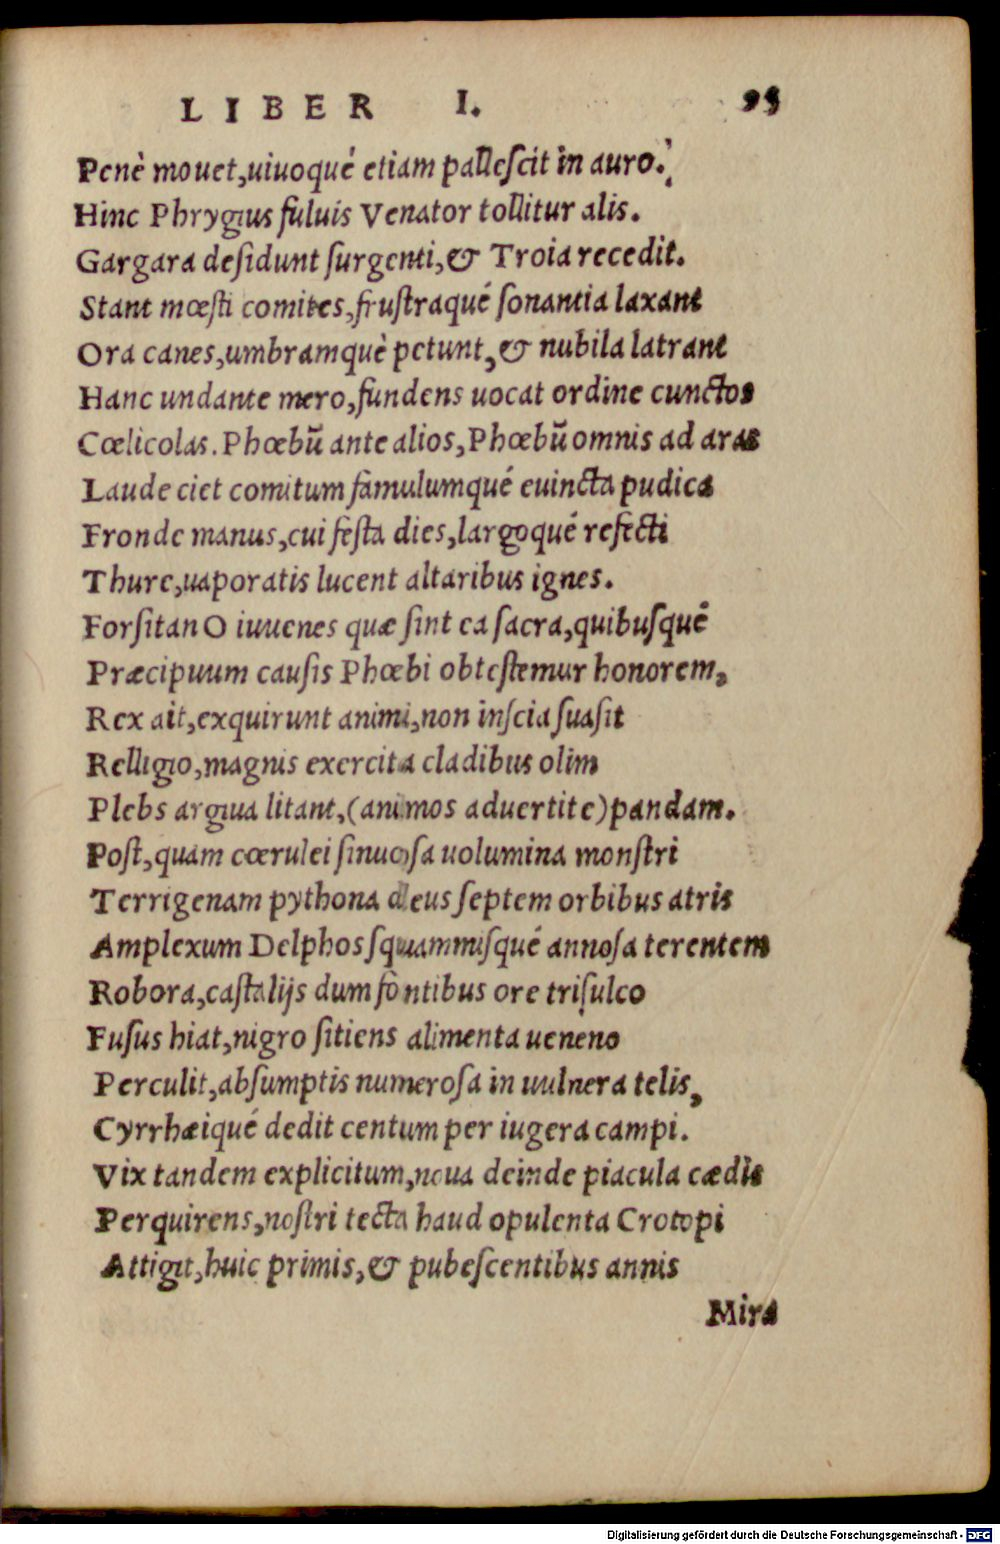 LIBER I. 95
Penè mouet,uiuoqué etiam pallescit in auro.
Hinc Phrygius fuluis Venator tollitur alis.
Gargara desidunt surgenti,& Troia recedit.
Stant mœsti comites,frustraqué sonantia laxant
Ora canes,umbramquè petunt,& nubila latrant
Hanc undante mero,fundens uocat ordine cunctos
Cœlicolas. Phœbū ante alios,Phœbū omnis ad aras
Laude ciet comitum famulumqué euincta pudica
Fronde manus,cui festa dies,largoqué refecti
Thure,uaporatis lucent altaribus ignes.
Forsitan O iuuenes quæ sint ea sacra,quibusqué
Præcipuum causis Phœbi obtestemur honorem,
Rex ait,exquirunt animi,non inscia suasit
Relligio,magnis exercita cladibus olim
Plebs argiua litant,(animos aduertite)pandam.
Post,quam cœrulei sinuosa uolumina monstri
Terrigenam pythona deus septem orbibus atris
Amplexum Delphos squammisqué annosa terentem
Robora,castalijs dum fontibus ore trisulco
Fusus hiat,nigro sitiens alimenta ueneno
Perculit,absumptis numerosa in uulnera telis,
Cyrrhæiqué dedit centum per iugera campi.
Vix tandem explicitum,noua deinde piacula cædis
Perquirens,nostri tecta haud opulenta Crotopi
Attigit,huic primis,& pubescentibus annis
Mira
Digitalisierung gefördert durch die Deutsche Forschungsgemeinschaft - DFG